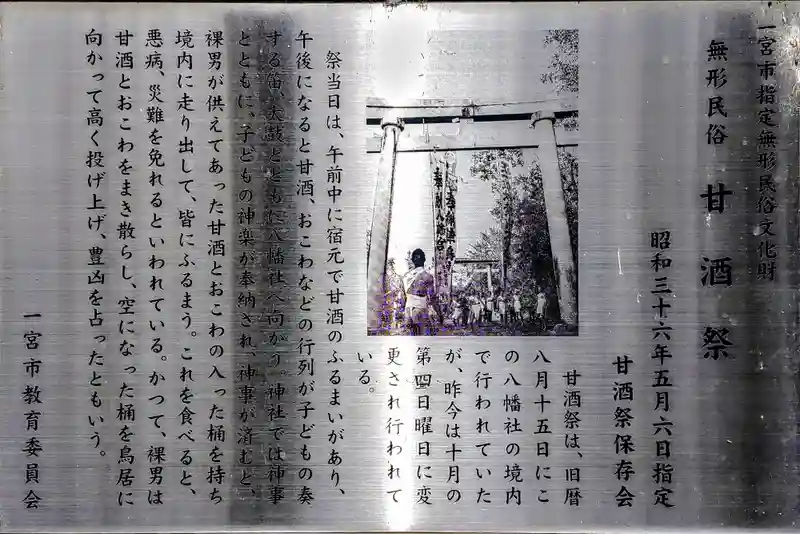 一宮市指定無形民俗文化財
無形民俗 甘酒祭
昭和三十六年五月六日指定
甘酒祭保存会
甘酒祭は、旧暦
八月十五日にこ
の八幡社の境内
で行われていた
が、昨今は十月の
第四日曜日に変
更され行われて
いる。
祭当日は、午前中に宿元で甘酒のふるまいがあり、
午後になると甘酒、おこわなどの行列が子どもの奏
する笛、太鼓とともに八幡社へ向かう。神社では神事
とともに、子どもの神楽が奉納され、神事が済むと、
裸男が供えてあった甘酒とおこわの入った桶を持ち
境内に走り出して、皆にふるまう。これを食べると、
悪病、災難を免れるといわれている。かつて、裸男は
甘酒とおこわをまき散らし、空になった桶を鳥居に
向かって高く投げ上げ、豊凶を占ったともいう。
一宮市教育委員会